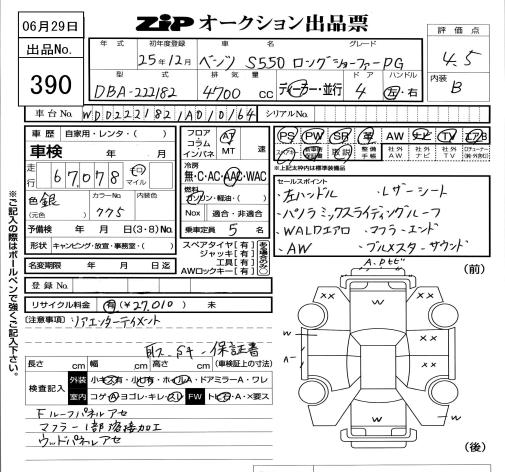 06月29日
出品No.
390
ZiP オークション出品票
評価点
4.5
内装
B
年式 初年度登録 車名 グレード
25年12月 ベンツ S550 ロングショーファーPG
型式 排気量 ドア ハンドル
DBA-222182 4700 cc ディーラー・並行 4 左・右
車台No. WDD2221821A010164 シリアルNo.
車歴 自家用・レンタ( )
車検 年 月
走行 67,078 キロ マイル
色 銀 (元色) カラーNo. 775 内装色
予備検 年 月 日 (3・8)No.
形状 キャンピング・放宣・事務室・( )
名変期限 年 月 日迄
フロア コラム インパネ AT MT 速
冷房 無・C・AC・AAC・WAC
燃料 ガソリン・軽油・( )
Nox 適合・非適合
乗車定員 5 名
スペアタイヤ[有]
ジャッキ[有]
工具[有]
AWロックキー[有]
PS PW SR 革 AW ナビ TV エアB
取説 整備手帳 社外AW 社外ナビ 社外TV
※上記太枠内は標準装備品
セールスポイント
・左ハンドル ・レザーシート
・パノラミックスライディングルーフ
・WALDエアロ ・マフラーエンド
・AW ・ブルメスターサウンド
登録No.
リサイクル料金 有(¥27,010) 未
(注意事項) リアエンターテイメント
保証書
長さ cm 幅 cm 高さ cm (車検証上の寸法)
検査記入 外装 小キズ有・小凹有・ホイルA・ドアミラーA・ワレ
室内 コゲ・A・ヨゴレ・キレ・スレ FW トビ石・A・×要ス
Fルーフパネルアセ
マフラー1部溶接加工
ウッドパネルアセ
(前)
A.トビ
××
××
W
W
W
A
××
××
W
W
(後)
※ご記入の際はボールペンで強くご記入下さい。